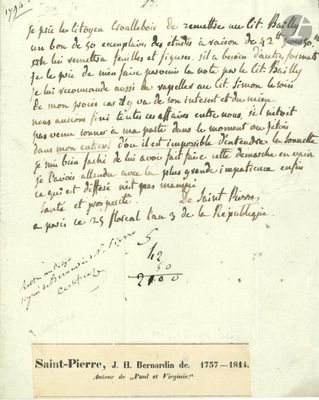 1794
je prie le citoyen Croullebois de remettre au Cit. Bailly
un bon de 50 exemplaires des études à raison de 42
lui remettra feuilles et figures. s'il a besoin d'autres formats
je le prie de m'en faire parvenir la note par le Cit. Bailly
je lui recommande aussi de rappeller au Cit. Simon le soin
de mon procès car il y va de son interest et du mien.
nous aurions fini toutes ces affaires entre nous s'il n'étoit
pas venu sonner à ma porte dans le moment ou j'étois
dans mon entresol d'où il est impossible d'entendre la sonnette
je suis bien faché de lui avoir fait faire cette demarche en vain
je l'avois attendu avec la plus grande impatience enfin
ce qui est differé n'est pas manqué
Santé et prosperité. De Saint Pierre
a paris ce 25 floreal l'an 3 de la Republique
42
50
2100
Lettre autogr.
signée de Bernardin de St Pierre
Saint-Pierre, J. H. Bernardin de. 1757—1814.
Auteur de „Paul et Virginie."